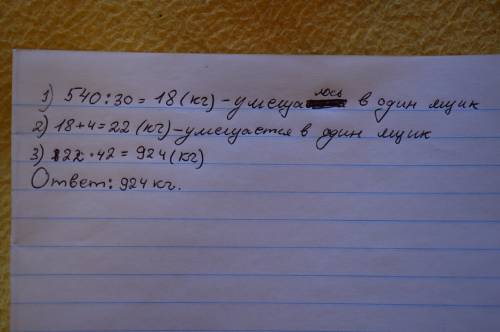 1) 540:30=18(кг)-умещалось в один ящик
2) 18+4=22(кг)-умещается в один ящик
3) 22·42=924(кг)
Ответ: 924 кг.